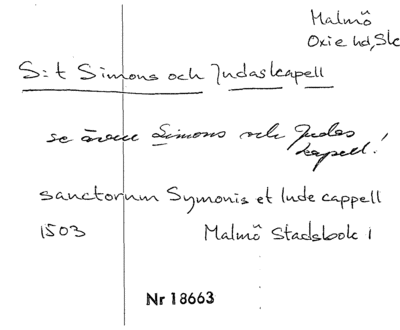 Malmö
Oxie hd, Sk
S:t Simons och Judaskapell
se även Simons och Judas
kapell!
sanctorum Symonis et Iude cappell
1503 Malmö Stadsbok 1
Nr 18663